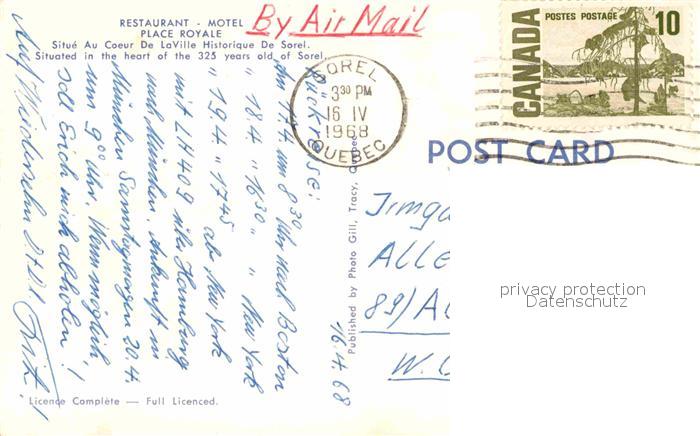 RESTAURANT - MOTEL
PLACE ROYALE
Situé Au Coeur De LaVille Historique De Sorel.
Situated in the heart of the 325 years old of Sorel.
By Air Mail
CANADA
POSTES POSTAGE
10
SOREL
3 30 PM
16 IV
1968
QUEBEC
POST CARD
16.4.68
Rückreise:
Am 17.4 um 8 30 Uhr nach Boston
" 18.4 " 16 30 " " New York
" 19.4 " 17 45 ab New York
mit LH 409 über Hamburg
nach München. Ankunft in
München Samstagmorgen 20.4.
um 9 00 Uhr. Wenn möglich,
soll Erich mich abholen!
Auf Wiedersehn
Published by Photo Gill, Tracy, Quebec
Irmga
ALLE
89/AU
W. G
privacy protection
Datenschutz
Licence Complète — Full Licenced.